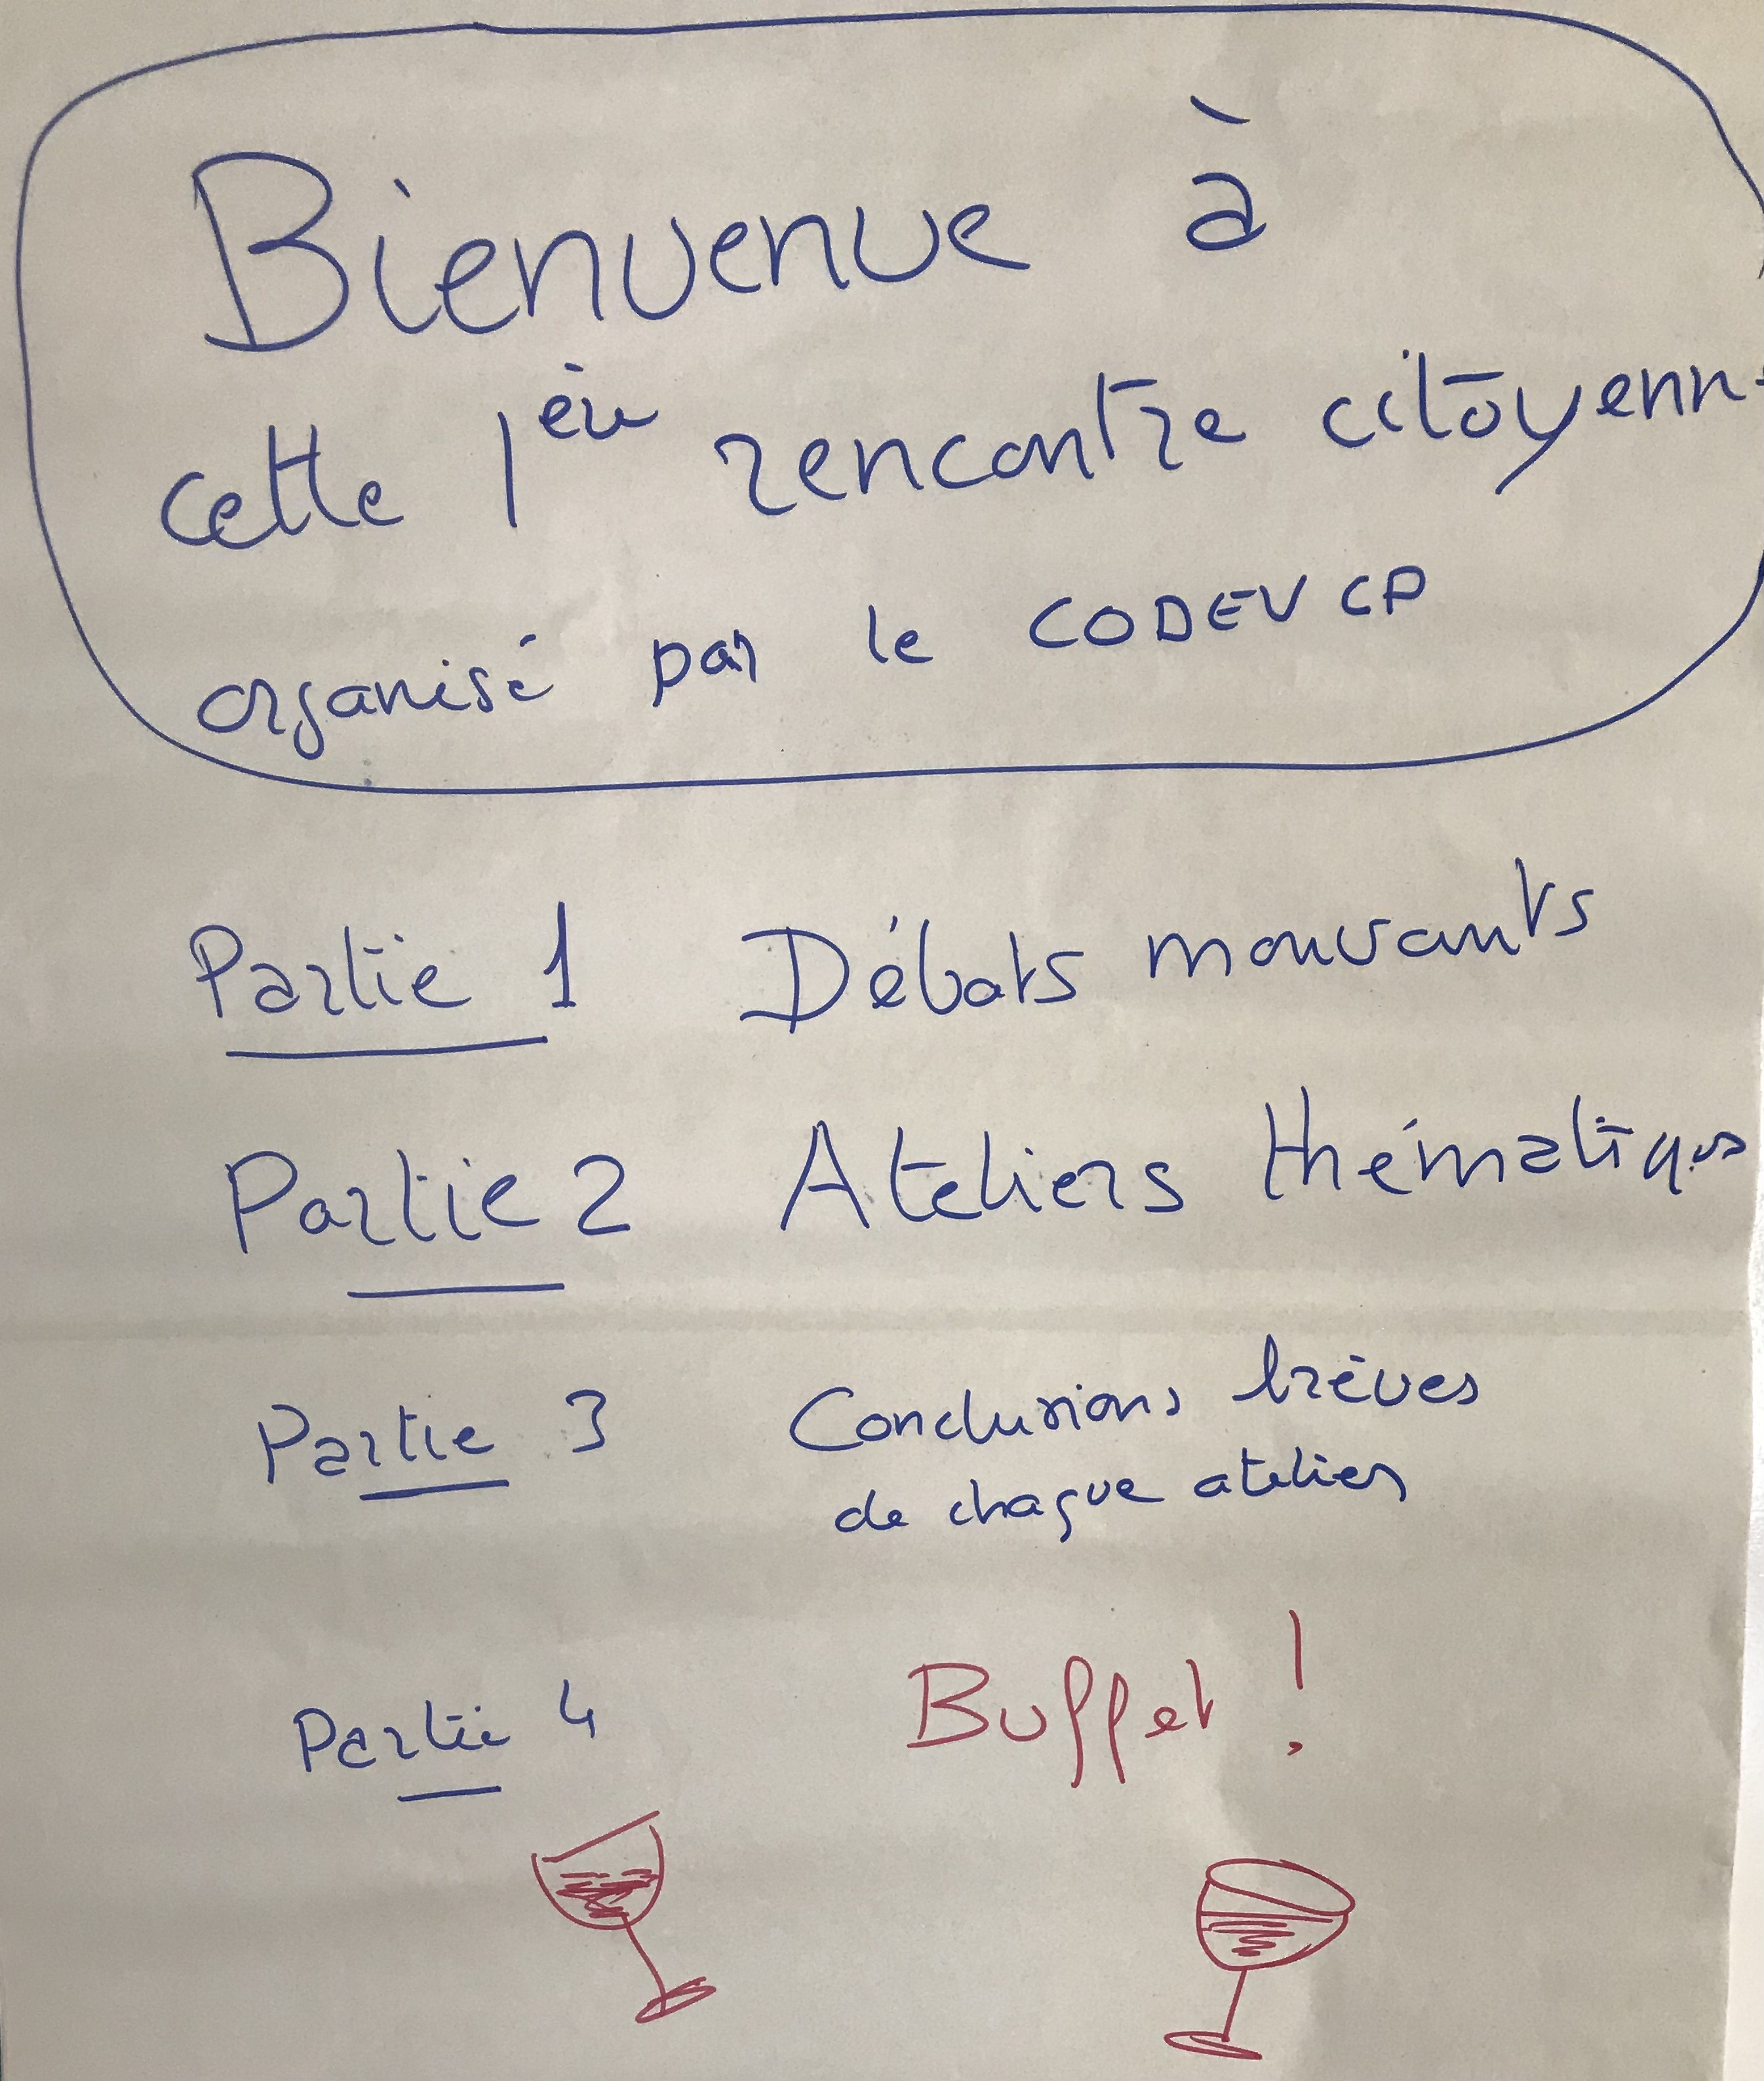 Bienvenue à
cette 1ère rencontre citoyenne
organisé par le CODEV CP
Partie 1 Débats mouvants
Partie 2 Ateliers thématiques
Partie 3 Conclusions brèves
de chaque atelier
Partie 4 Buffet !